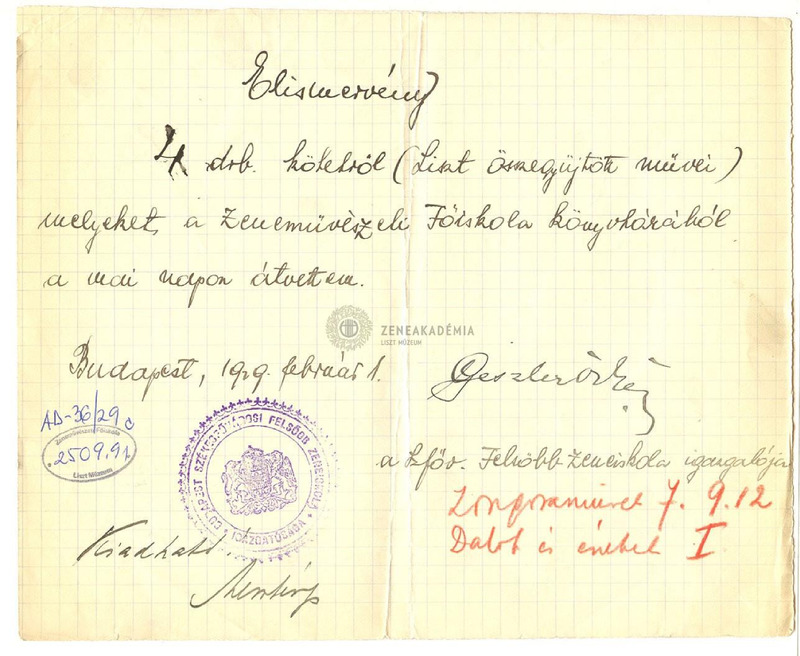 Elismervény
4 drb. kötetről (Liszt összegyüjtött művei)
melyeket a Zeneművészeti Főiskola könyvtárából
a mai napon átvettem.
ZENEAKADÉMIA
LISZT MÚZEUM
Budapest, 1929. február 1.
AD-36/29
Zeneművészeti Főiskola
2509.91
Liszt Múzeum
BUDAPEST SZÉKESFŐVÁROSI FELSŐBB ZENEISKOLA
IGAZGATÓSÁGA
a Szföv. Felsőbb Zeneiskola igazgatója
Zongoraművek 7. 9. 12
Dalok és énekek I
Kiadható